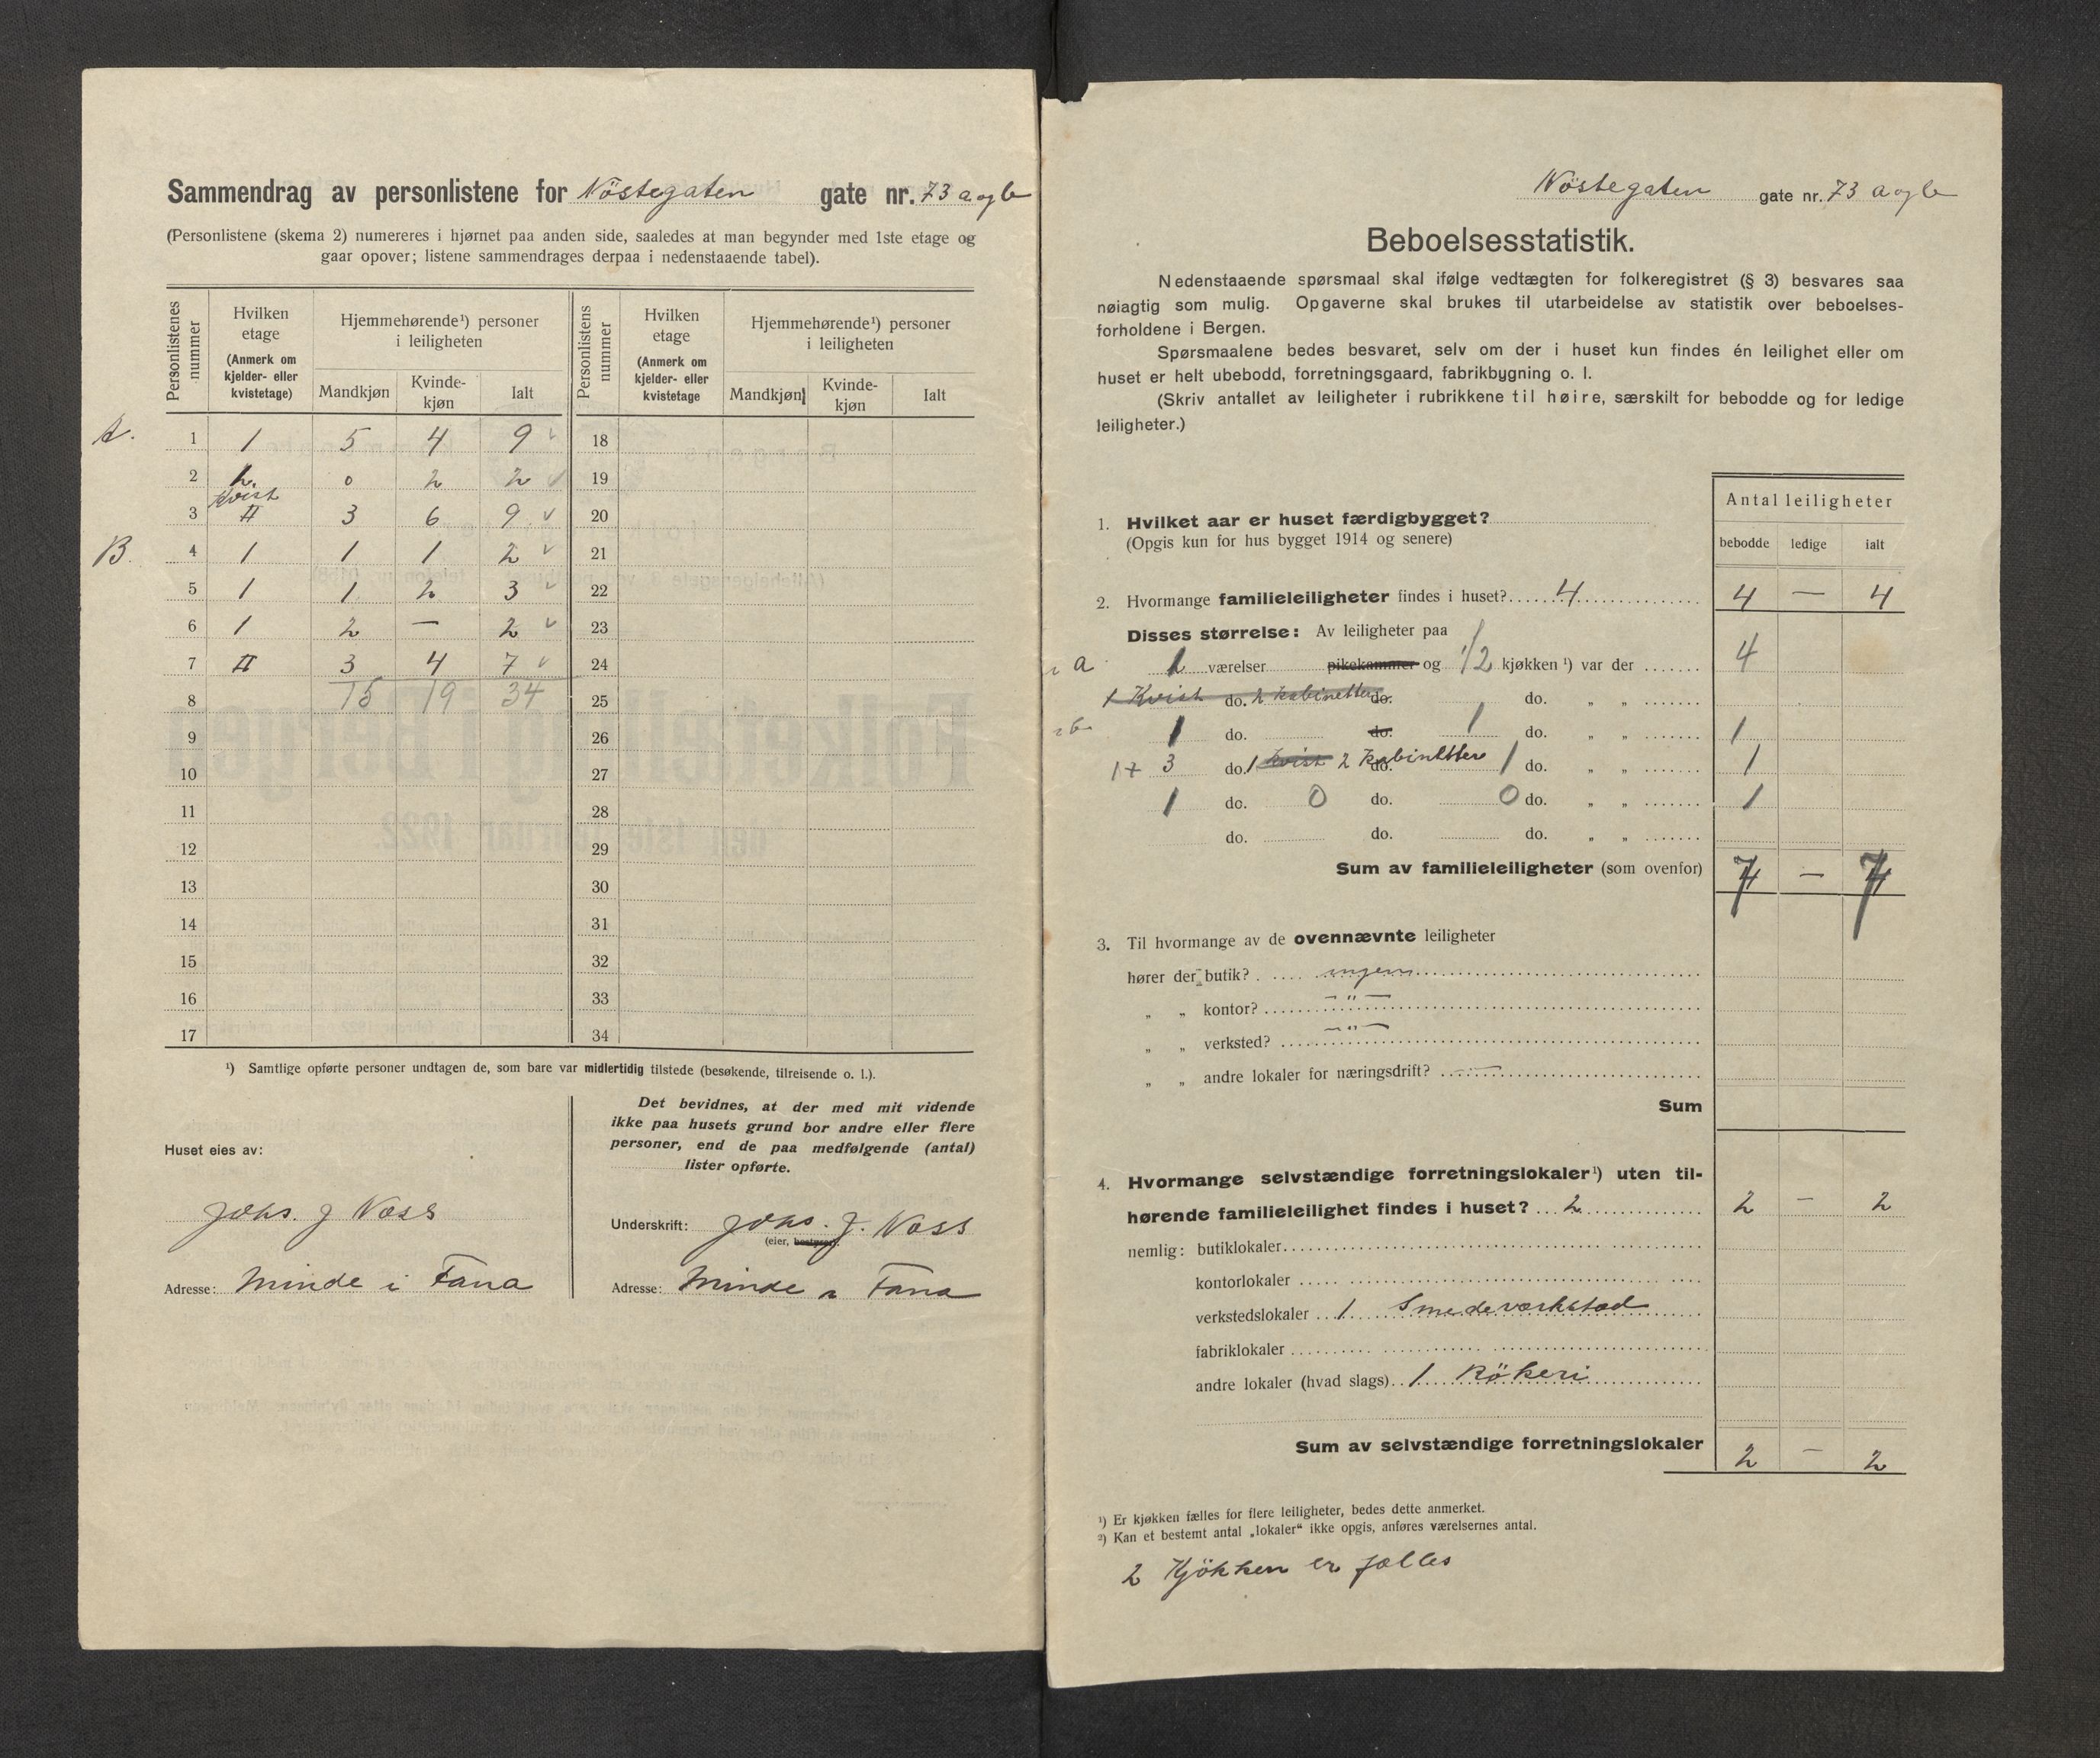 Sammendrag av personlistene for Nöstegaten gate nr. 73 a og b
(Personlistene (skema 2) numereres i hjørnet paa anden side, saaledes at man begynder med 1ste etage og
gaar opover; listene sammendrages derpaa i nedenstaaende tabel).
Personlistenes nummer | Hvilken etage (Anmerk om kjelder- eller kvistetage) | Hjemmehørende¹) personer i leiligheten | Personlistens nummer | Hvilken etage (Anmerk om kjelder- eller kvistetage | Hjemmehørende¹) personer i leiligheten
Mandkjøn | Kvinde-kjøn | Ialt | Mandkjøn | Kvinde-kjøn | Ialt
A. 1 1 5 4 9 ✓ 18
2 2. Kvist 0 2 2 ✓ 19
3 II 3 6 9 ✓ 20
B. 4 1 1 1 2 ✓ 21
5 1 1 2 3 ✓ 22
6 1 2 — 2 ✓ 23
7 II 3 4 7 ✓ 24
8 15 19 34 25
9 26
10 27
11 28
12 29
13 30
14 31
15 32
16 33
17 34
¹) Samtlige opførte personer undtagen de, som bare var midlertidig tilstede (besøkende, tilreisende o. l.).
Huset eies av:
Johs. J Voss
Adresse: Minde i Fana
Det bevidnes, at der med mit vidende
ikke paa husets grund bor andre eller flere
personer, end de paa medfølgende (antal)
lister opførte.
Underskrift: Johs. J. Voss
(eier, bestyrer).
Adresse: Minde i Fana
Nöstegaten gate nr. 73 a og b
Beboelsesstatistik.
Nedenstaaende spørsmaal skal ifølge vedtægten for folkeregistret (§ 3) besvares saa
nøiagtig som mulig. Opgaverne skal brukes til utarbeidelse av statistik over beboelses-
forholdene i Bergen.
Spørsmaalene bedes besvaret, selv om der i huset kun findes én leilighet eller om
huset er helt ubebodd, forretningsgaard, fabrikbygning o. l.
(Skriv antallet av leiligheter i rubrikkene til høire, særskilt for bebodde og for ledige
leiligheter.)
Antal leiligheter
bebodde | ledige | ialt
1. Hvilket aar er huset færdigbygget?
(Opgis kun for hus bygget 1914 og senere)
2. Hvormange familieleiligheter findes i huset? 4 4 — 4
Disses størrelse: Av leiligheter paa
a 1 værelser pikekammer og 1/2 kjøkken ¹) var der 4
1 Kvist do. 2 kabinetter do. do. „ „
b 1 do. do. 1 do. „ „ 1
1+ 3 do. 1 Kvist 2 kabinetter do. 1 do. „ „ 1
1 do. 0 do. 0 do. „ „ 1
do. do. do. „ „
Sum av familieleiligheter (som ovenfor) 7 — 7
3. Til hvormange av de ovennævnte leiligheter
hører der butik? ingen
„ „ kontor? — " —
„ „ verksted? — " —
„ „ andre lokaler for næringsdrift? —
Sum
4. Hvormange selvstændige forretningslokaler¹) uten til-
hørende familieleilighet findes i huset? 2 2 — 2
nemlig: butiklokaler
kontorlokaler
verkstedslokaler 1 Smedeværksted
fabriklokaler
andre lokaler (hvad slags) 1 Rökeri
Sum av selvstændige forretningslokaler 2 — 2
¹) Er kjøkken fælles for flere leiligheter, bedes dette anmerket.
²) Kan et bestemt antal „lokaler“ ikke opgis, anføres værelsernes antal.
2 Kjökken er fælles